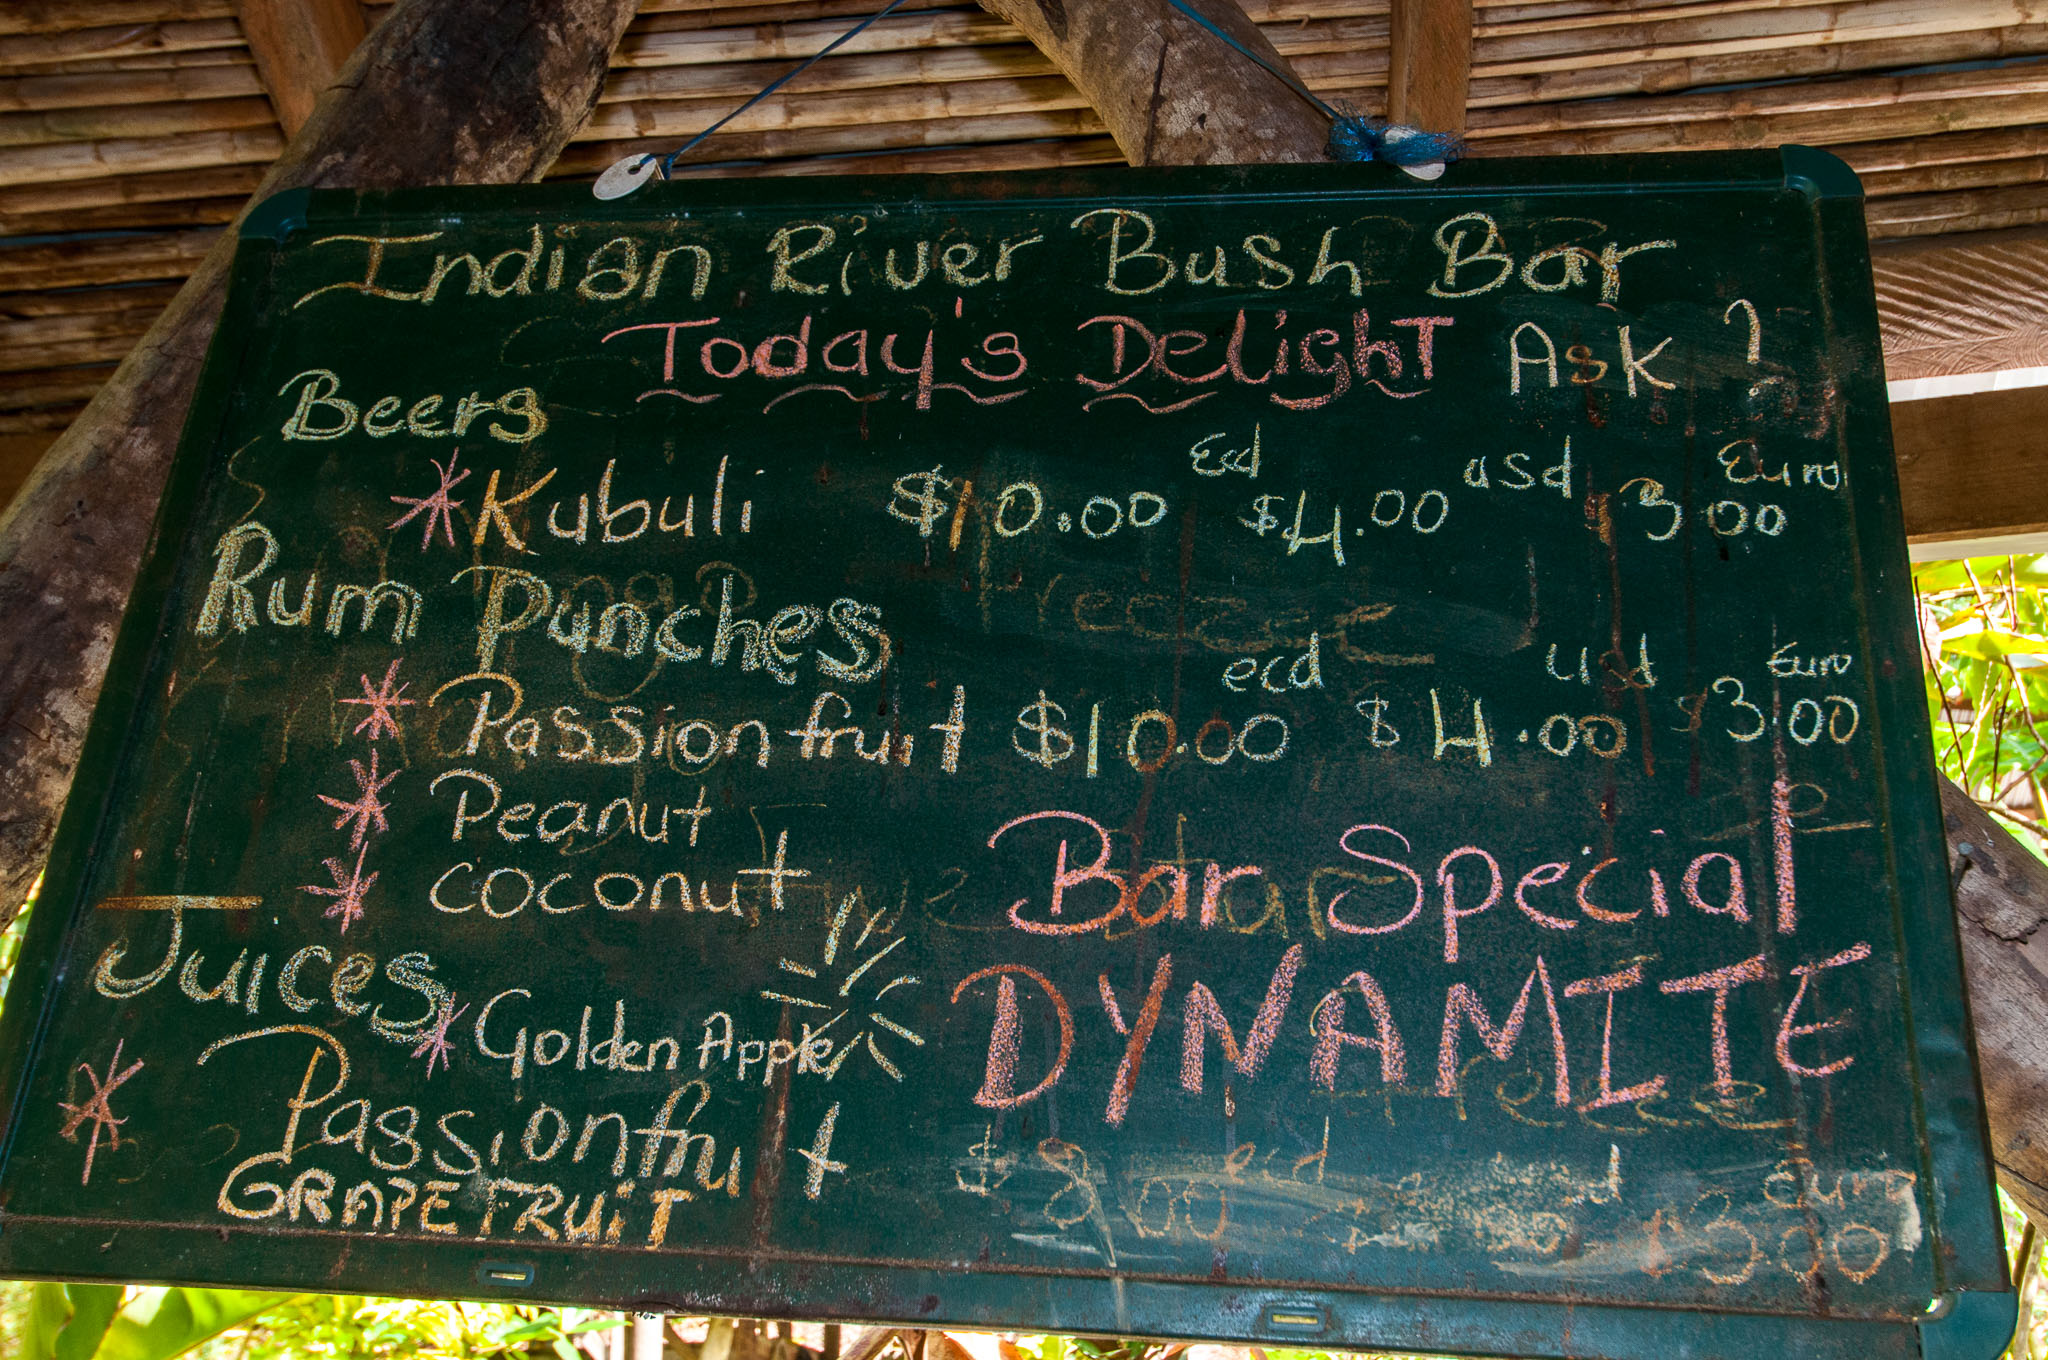 Indian River Bush Bar
Today's Delight Ask ?
Beers
Ecd usd Euro
* Kubuli $10.00 $4.00 3.00
Rum Punches
ecd usd Euro
* Passionfruit $10.00 $4.00 $3.00
* Peanut
* coconut
Bar Special
DYNAMITE
Juices
* Golden Apple
* Passionfruit
GRAPEFRUIT
Euro
$3.00